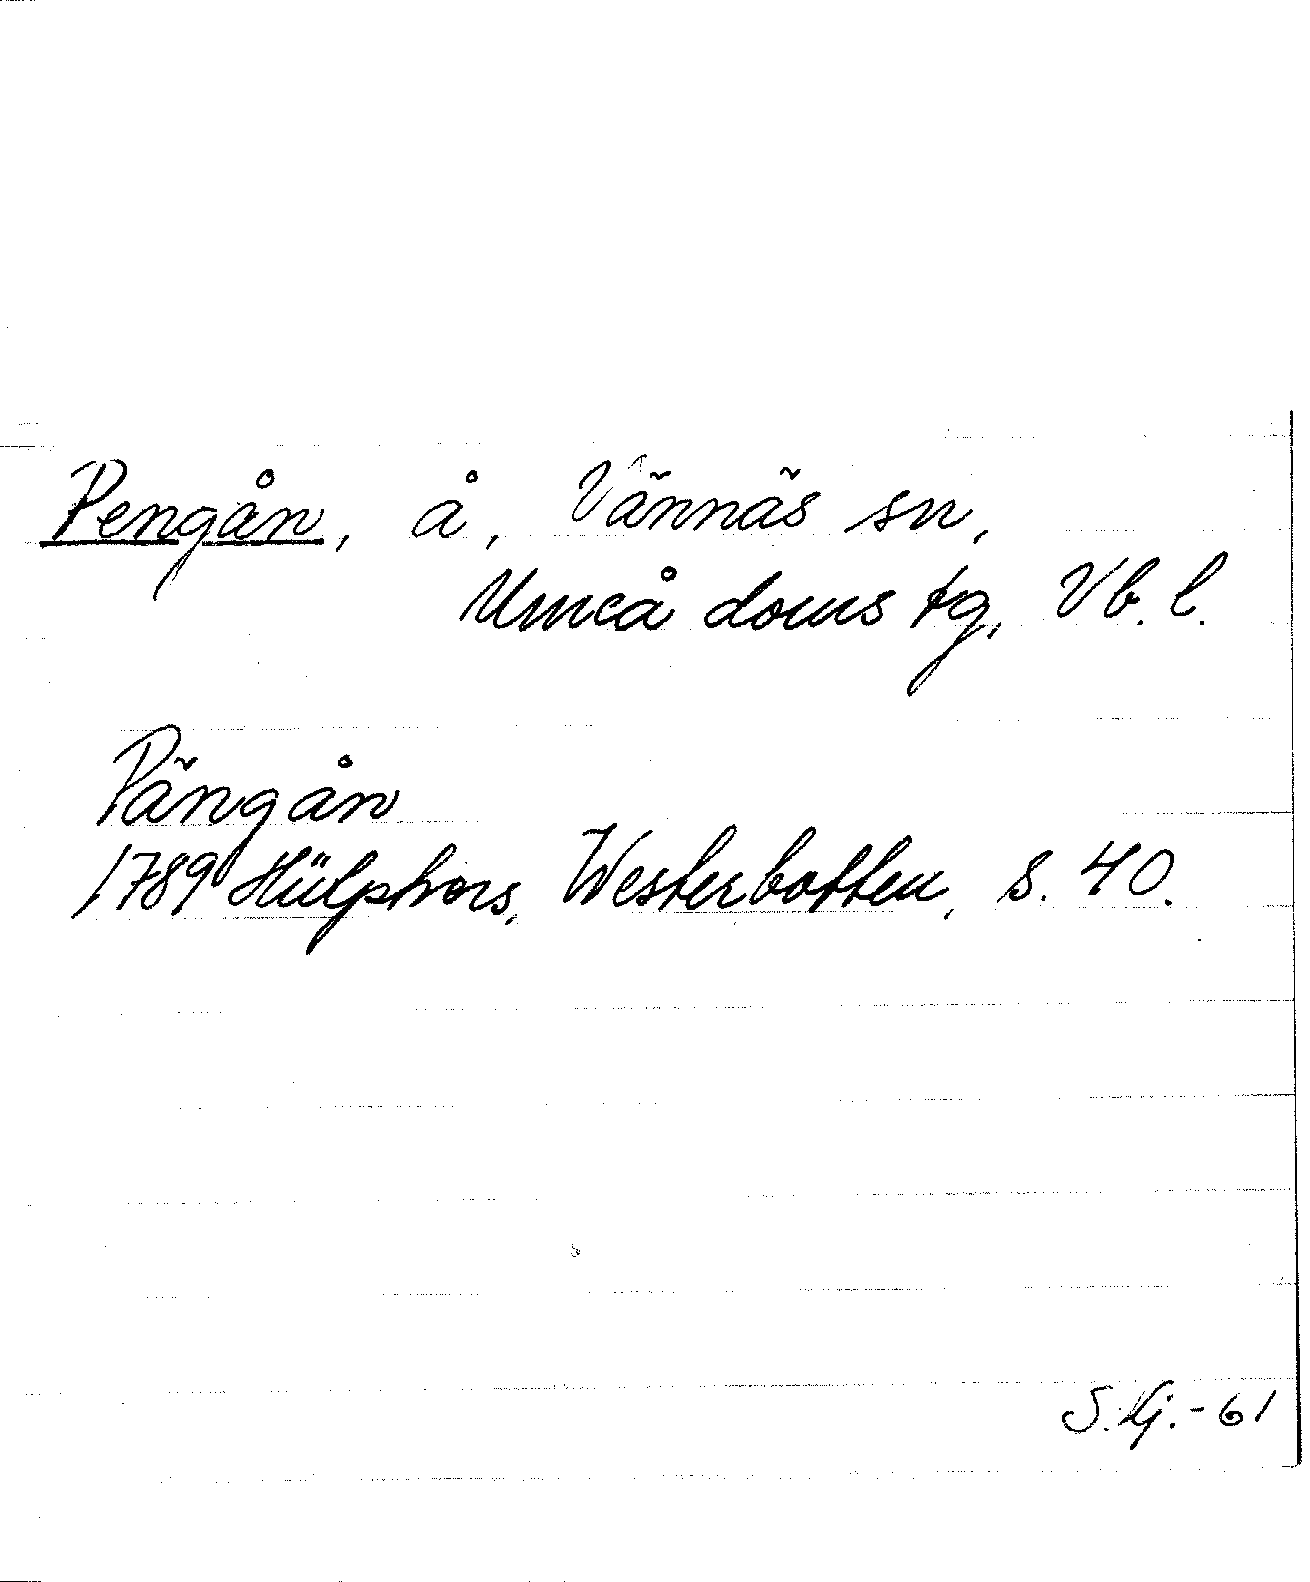 Pengån, å, Vännäs sn,
Umeå doms tg, Vb. l.
Pängån
1789 Hülphers, Westerbotten, s. 40.
S. Kj. - 61